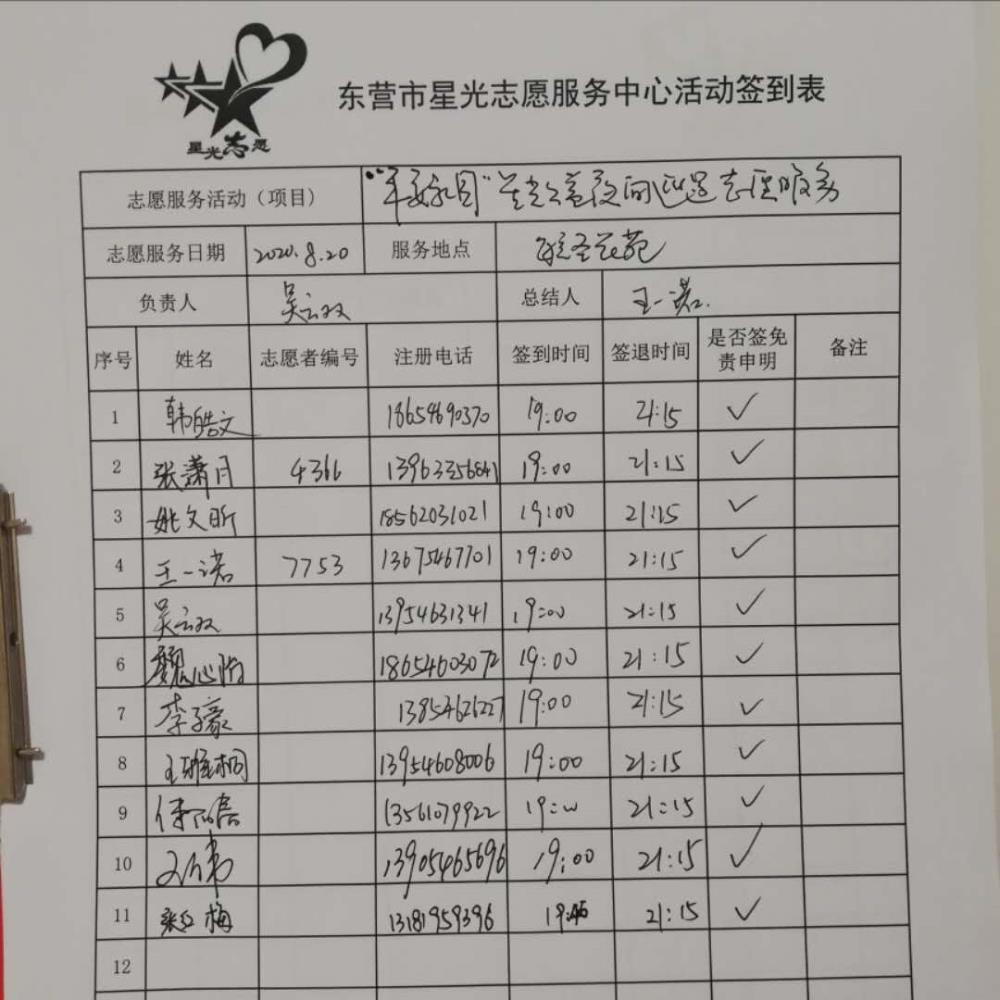 星光志愿
东营市星光志愿服务中心活动签到表
志愿服务活动（项目） 星光公益夜间巡逻志愿服务
志愿服务日期 2020.8.20 服务地点
负责人 吴云双 总结人 王一诺.
序号 姓名 志愿者编号 注册电话 签到时间 签退时间 是否签免责申明 备注
1 韩皓文 18654690370 19:00 21:15 ✓
2 张萧月 4366 13963356841 19:00 21:15 ✓
3 姚文昕 18562031021 19:00 21:15 ✓
4 王一诺 7753 13675467701 19:00 21:15 ✓
5 吴云双 13954631341 19:00 21:15 ✓
6 魏心怡 18654603072 19:00 21:15 ✓
7 李子豪 13854626227 19:00 21:15 ✓
8 王雅桐 13954608006 19:00 21:15 ✓
9 13561079922 19:00 21:15 ✓
10 13905465696 19:00 21:15 ✓
11 梅 13181959396 21:15 ✓
12